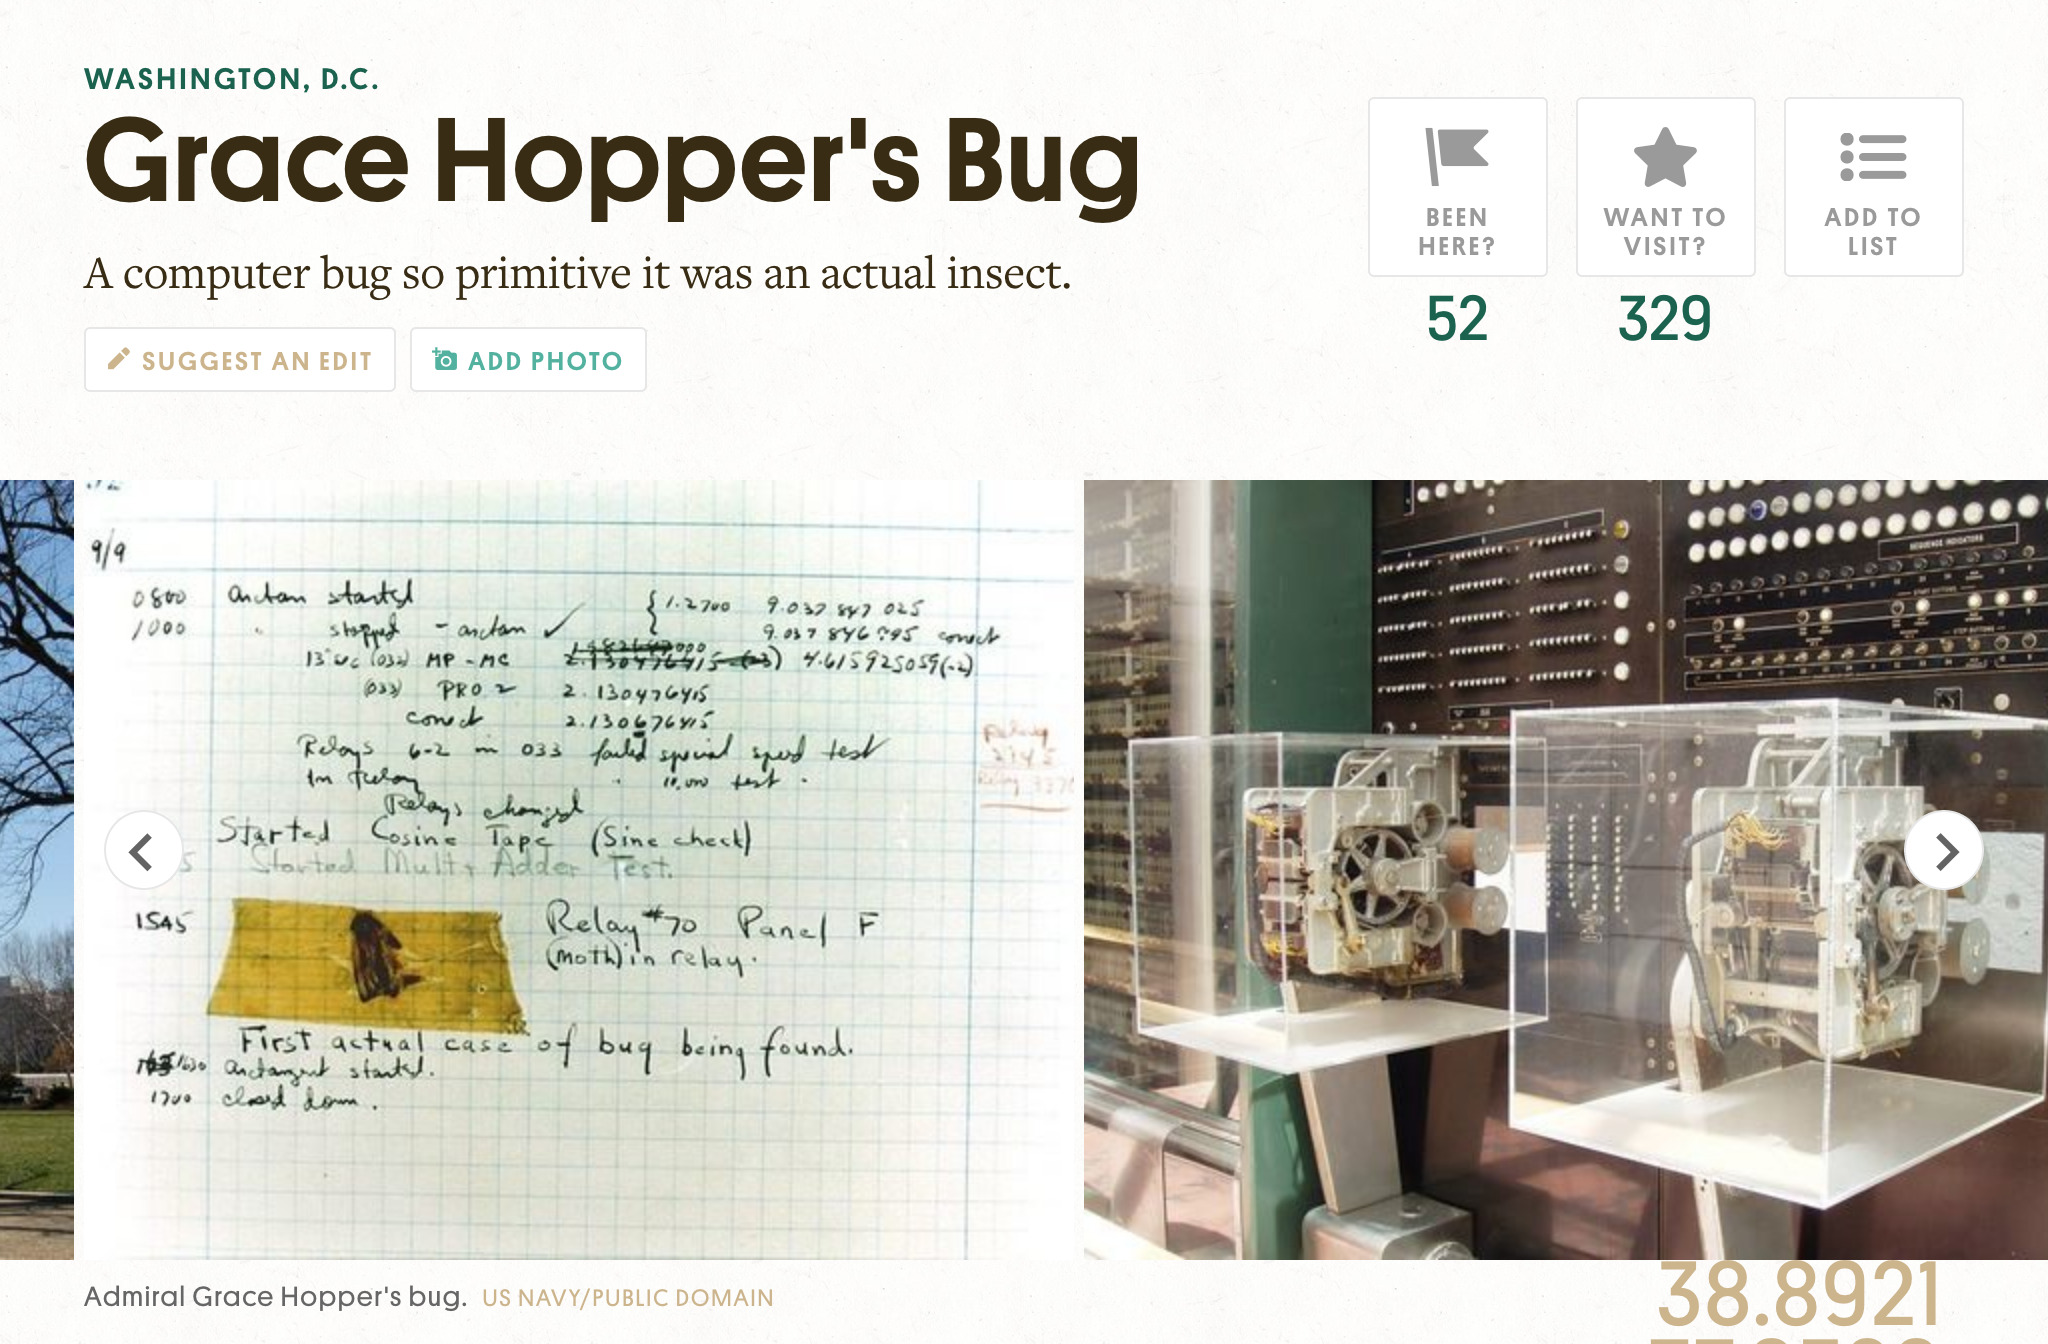 WASHINGTON, D.C.
Grace Hopper's Bug
A computer bug so primitive it was an actual insect.
SUGGEST AN EDIT
ADD PHOTO
BEEN HERE?
52
WANT TO VISIT?
329
ADD TO LIST
9/9
0800 Arctan started
1000 " stopped - arctan ✓
{ 1.2700 9.037 847 025
9.037 846 995 correct
13"uc (032) MP - MC 4.615925059(-2)
(033) PRO 2 2.130476415
correct 2.130676415
Relays 6-2 in 033 failed special speed test
In Relay " 10,000 test .
Relays changed
Started Cosine Tape (Sine check)
Started Mult + Adder Test.
1545 Relay #70 Panel F
(moth) in relay.
First actual case of bug being found.
1630 Arctangent started.
1700 closed down.
Relay
Relay
SEQUENCE INDICATORS
START BUTTONS
STOP BUTTONS
Admiral Grace Hopper's bug. US NAVY/PUBLIC DOMAIN
38.8921